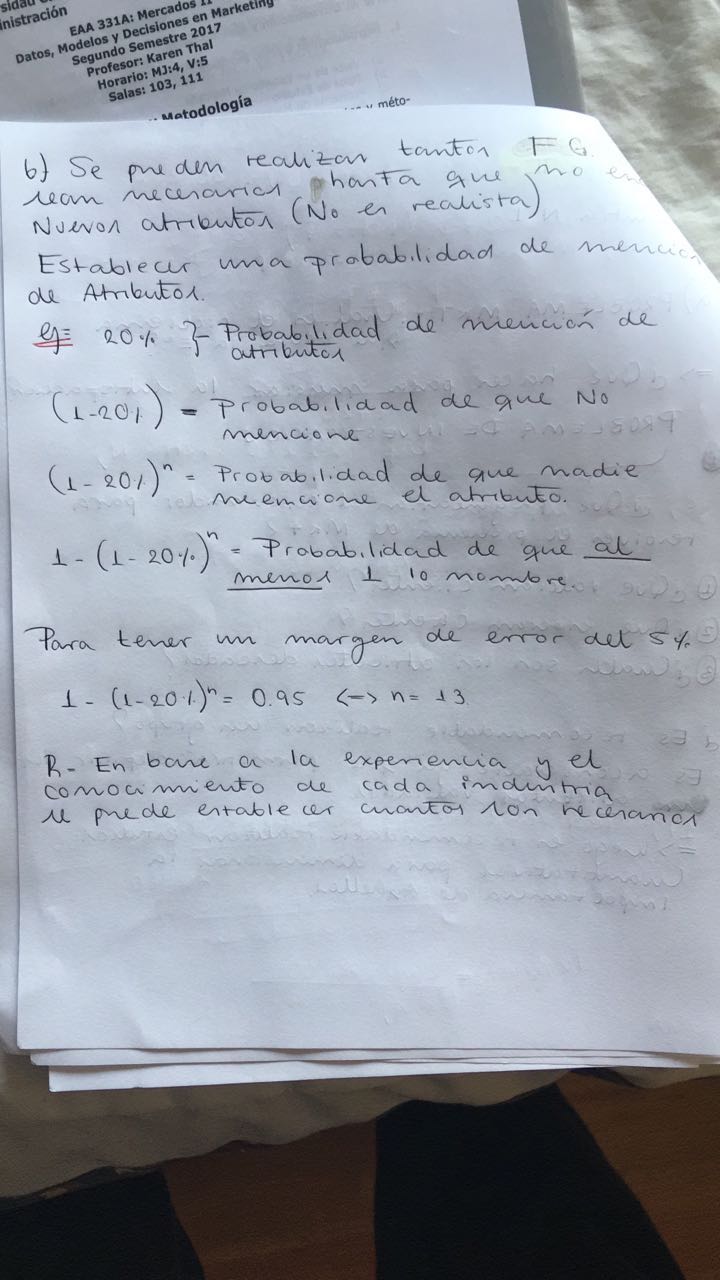 ministración
EAA 331A: Mercados II
Datos, Modelos y Decisiones en Marketing
Segundo Semestre 2017
Profesor: Karen Thal
Horario: MJ:4, V:5
Salas: 103, 111
Metodología
y méto-
b) Se pueden realizar tantos FG.
sean necesarios hasta que no en
Nuevos atributos (No es realista)
Establecer una probabilidad de mención
de Atributos.
ej= 20% } Probabilidad de mención de
atributos
(1-20%) = Probabilidad de que No
mencione
(1-20%)ⁿ = Probabilidad de que nadie
meencione el atributo.
1-(1-20%)ⁿ = Probabilidad de que al
menos 1 lo nombre.
Para tener un margen de error del 5%
1-(1-20%)ⁿ = 0.95 <-> n= 13
R- En base a la experiencia y el
conocimiento de cada industria
se puede establecer cuantos son necesarios